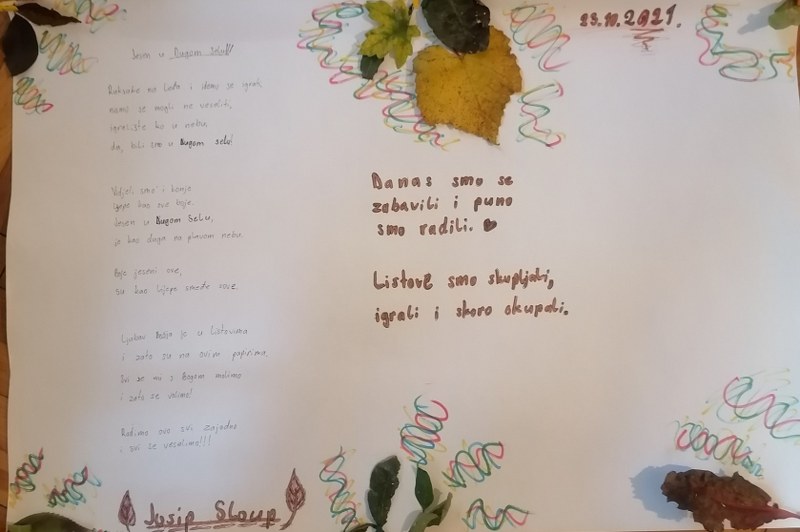 Jesen u Dugom Selu!!
i damo se igrati,
nismo se mogli ne veseliti,
igralište ko u nebu
da, bili smo u Dugom selu!
Vidjeli smo i konja
lijepe kao ove boje.
Jesen u Dugom Selu,
je kao duga na plavom nebu.
Boje jeseni ove,
su kao lijepe smeđe sove.
Ljubav Božja je u listovima
i zato su na ovim papirima.
Svi se mi s Bogom molimo
i zato se volimo!
Radimo ovo svi zajedno
i svi se veselimo!!!
Josip Sloup
23.10.2021.
Danas smo se
zabavili i puno
smo radili.
Listove smo skupljali,
igrali i skoro okupali.